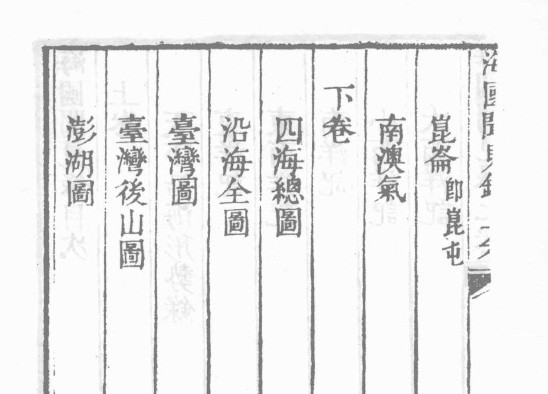 海國聞見錄
崑崙即崑屯
南澳氣
下卷
四海總圖
沿海全圖
臺灣圖
臺灣後山圖
澎湖圖